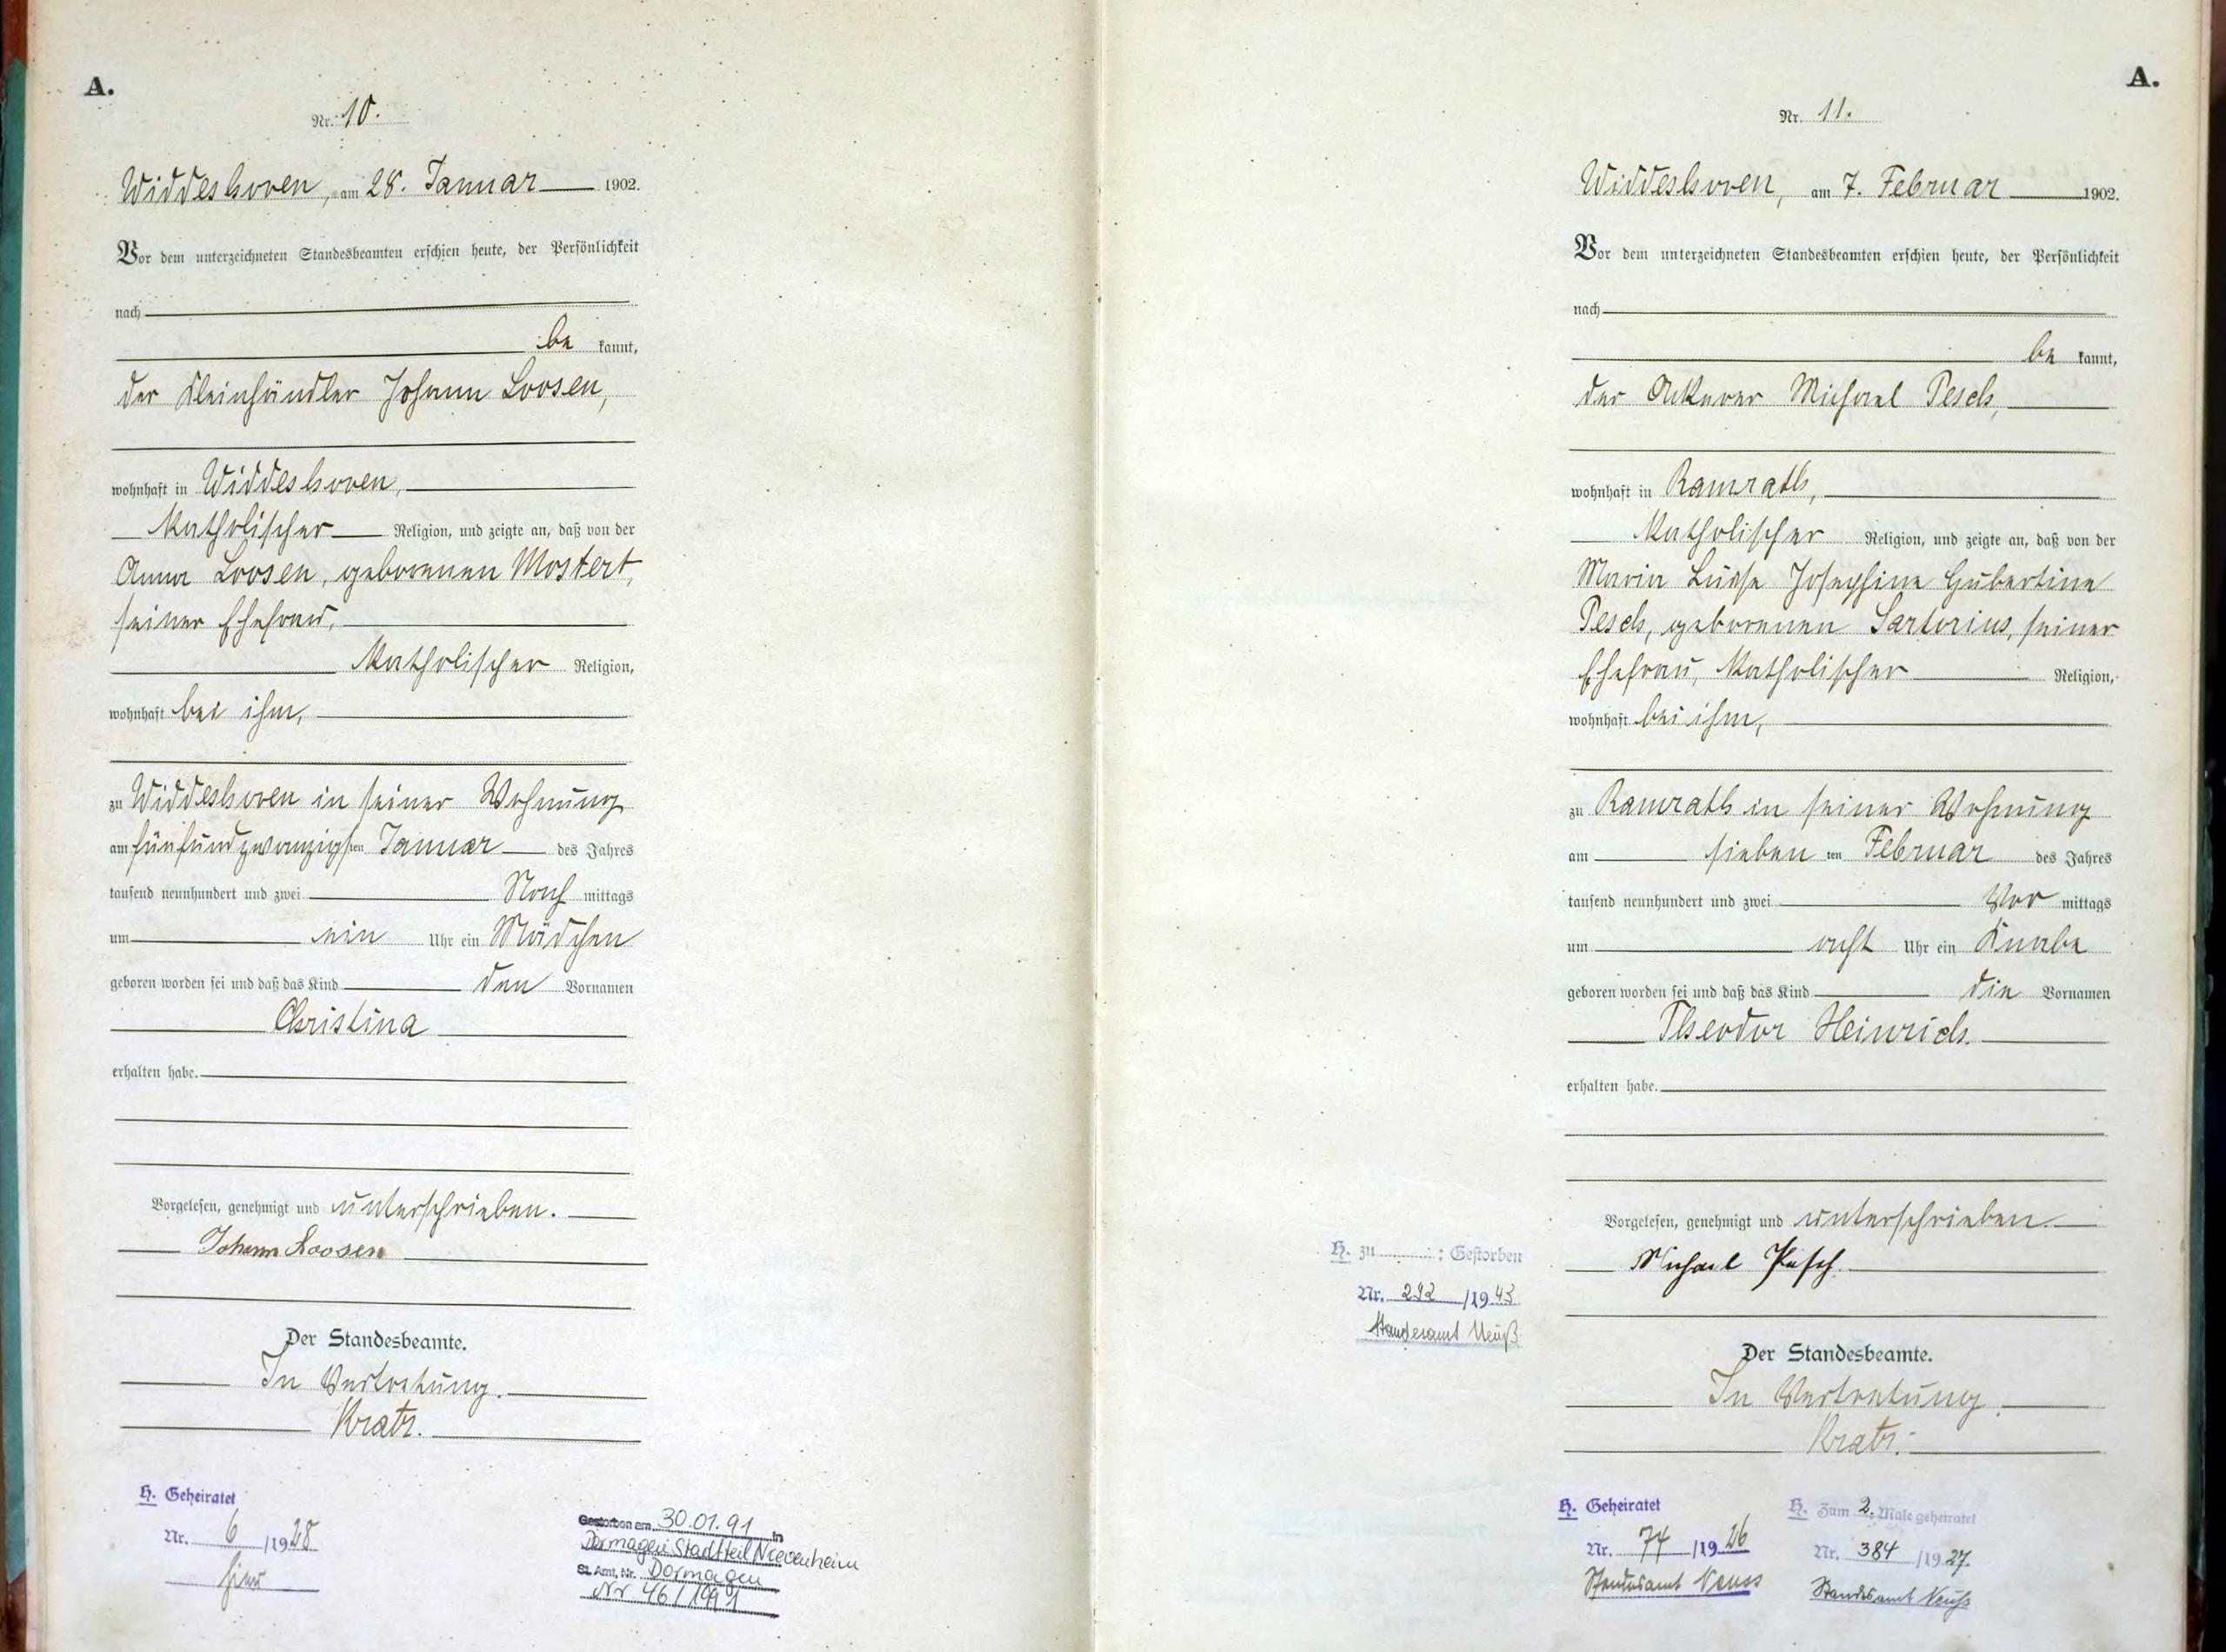 A.
Nr. 10.
Widdeshoven, am 28. Januar 1902.
Vor dem unterzeichneten Standesbeamten erschien heute, der Persönlichkeit
nach
be kannt,
der Kleinhändler Johann Loosen,
wohnhaft in Widdeshoven,
katholischer Religion, und zeigte an, daß von der
Anna Loosen, geborenen Mostert,
seiner Ehefrau,
katholischer Religion,
wohnhaft bei ihm,
zu Widdeshoven in seiner Wohnung
am fünfundzwanzigsten Januar des Jahres
tausend neunhundert und zwei Nach mittags
um ein Uhr ein Mädchen
geboren worden sei und daß das Kind den Vornamen
Christina
erhalten habe.
Vorgelesen, genehmigt und unterschrieben.
Johann Loosen
Der Standesbeamte.
In Vertretung.
Kratz.
H. Geheiratet
Nr. 6 /1928
hier
Gestorben am 30.01.91 in
Dormagen Stadtteil Nievenheim
St. Amt, Nr. Dormagen
Nr 46/1991
A.
Nr. 11.
Widdeshoven, am 7. Februar 1902.
Vor dem unterzeichneten Standesbeamten erschien heute, der Persönlichkeit
nach
be kannt,
der Ackerer Michael Pesch,
wohnhaft in Ramrath,
katholischer Religion, und zeigte an, daß von der
Maria Luise Josephine Hubertine
Pesch, geborenen Sartorius, seiner
Ehefrau, katholischer Religion,
wohnhaft bei ihm,
zu Ramrath in seiner Wohnung
am sieben ten Februar des Jahres
tausend neunhundert und zwei Vor mittags
um acht Uhr ein Knabe
geboren worden sei und daß das Kind die Vornamen
Theodor Heinrich.
erhalten habe.
Vorgelesen, genehmigt und unterschrieben.
Michael Pesch.
H. zu : Gestorben
Nr. 292 /1943
Standesamt Neuß
Der Standesbeamte.
In Vertretung.
Kratz.
H. Geheiratet
Nr. 74 /1926
Standesamt Neuss
H. Zum 2. Male geheiratet
Nr. 384 /1927.
Standesamt Neuß